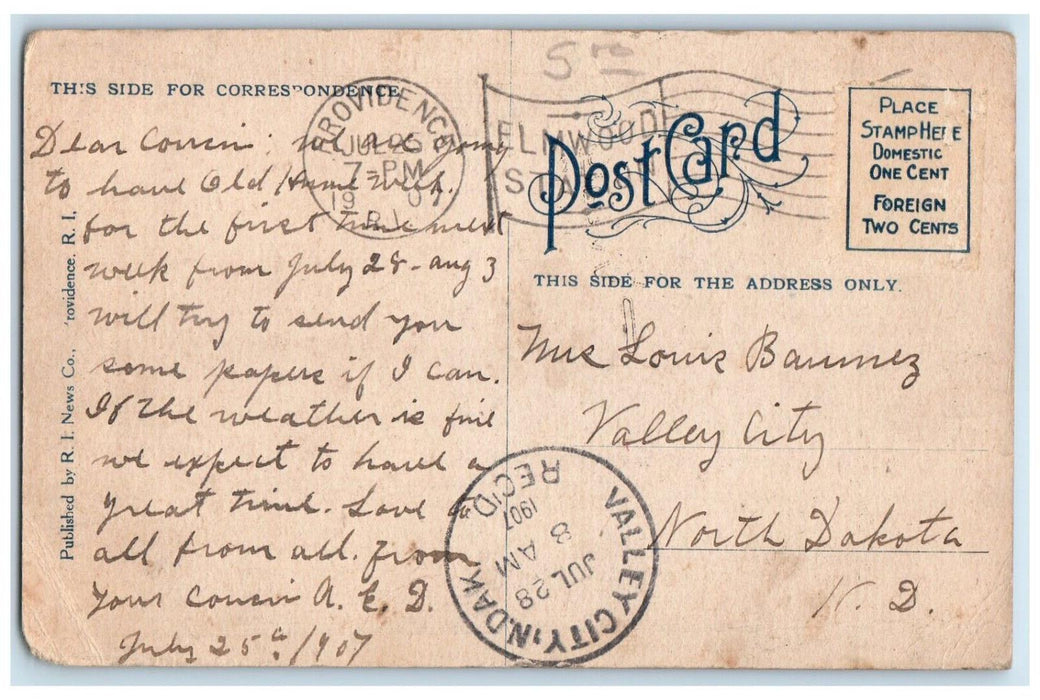 THIS SIDE FOR CORRESPONDENCE
Dear Cousin: we are going
to have Old Home Week.
for the first time next
week from July 28 - aug 3
will try to send you
some papers if I can.
If the weather is fine
we expect to have a
great time. Love
all from all. From
your Cousin A. E. D.
July 25th/1907
Published by R. I. News Co., rovidence, R. I,
PROVIDENCE
JUL 26
7-PM
1907
R.I.
ELMWOOD
STA
Post Card
PLACE
STAMP HERE
DOMESTIC
ONE CENT
FOREIGN
TWO CENTS
THIS SIDE FOR THE ADDRESS ONLY.
Louis
Valley City
North Dakota
N. D.
VALLEY CITY, N. DAK.
JUL 28
8 AM
1907
REC'D